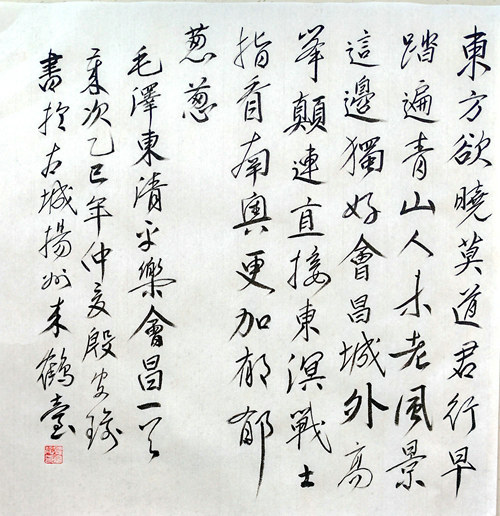 東方欲曉莫道君行早
踏遍青山人未老風景
這邊獨好會昌城外高
峯顛連直接東溟戰士
指看南粵更加郁郁
葱葱
毛澤東清平樂會昌一首
歲次乙巳年仲夏殷安璈
書於古城揚州來鶴臺